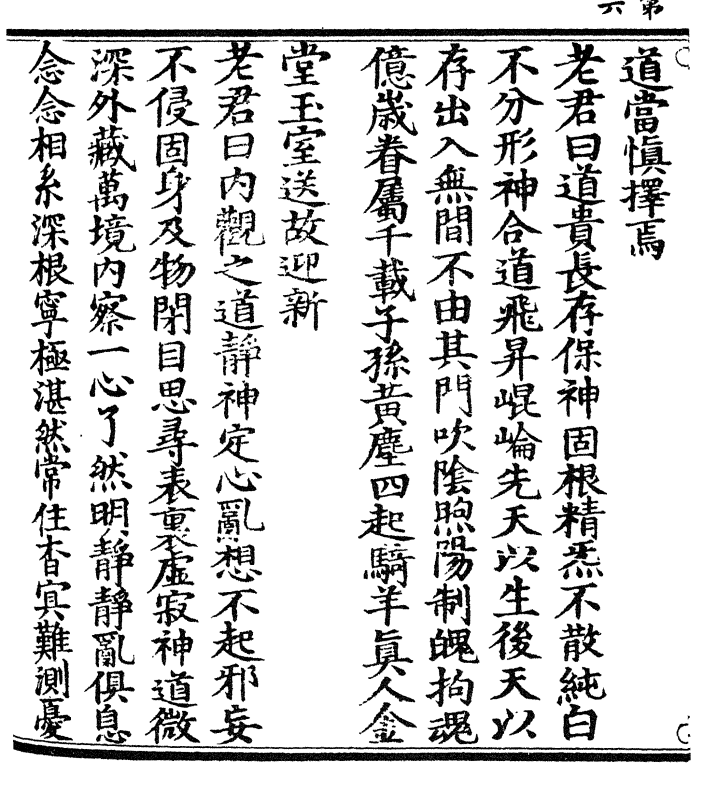 第六
道當慎擇焉
老君曰道貴長存保神固根精炁不散純白
不分形神合道飛昇崐崘先天以生後天以
存出入無間不由其門吹陰煦陽制魄拘魂
億歲眷屬千載子孫黃塵四起騎羊真人金
堂玉室送故迎新
老君曰内觀之道靜神定心亂想不起邪妄
不侵固身及物閉目思尋表裏虛寂神道微
深外藏萬境内察一心了然明靜靜亂俱息
念念相系深根寧極湛然常住杳冥難測憂